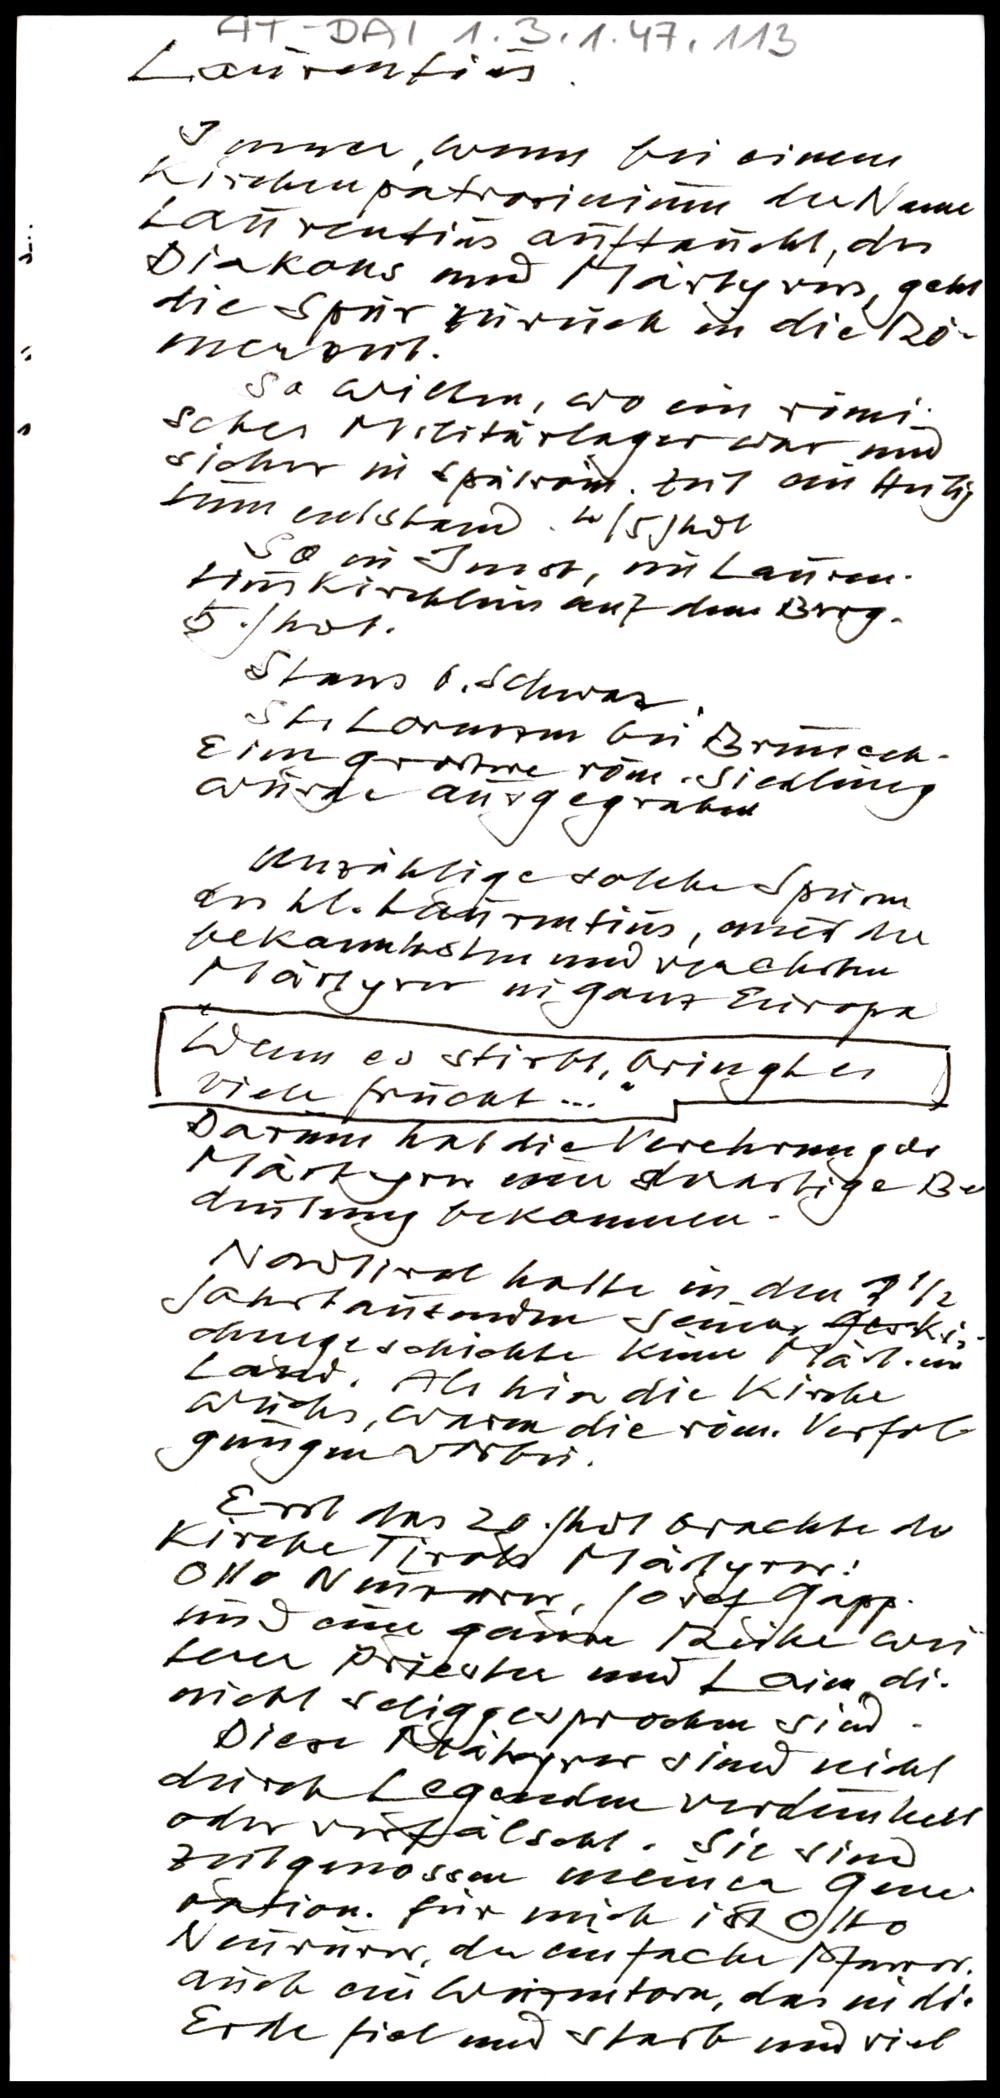 AT-DAI 1.3.1.47.113
Laurentius.
Immer, wenn bei einem
Kirchenpatrozinium der Name
Laurentius auftaucht, des
Diakons und Märtyrers, geht
die Spur zurück in die Rö-
merzeit.
So Wilten, wo ein römi-
sches Militärlager war und
sicher in spätröm. Zeit ein Heilig
tum entstand. 4/5 Jhdt
So in Imst, im Lauren-
tiuskirchlein auf dem Berg.
5. Jhdt.
Stans b. Schwaz,
St. Lorenzen bei Bruneck-
Eine grössere röm. Siedlung
wurde ausgegraben
Unzählige solche Spuren
des hl. Laurentius, eines der
bekanntesten und verehrten
Märtyrer in ganz Europa
Wenn es stirbt, bringt es
viele Frucht..."
Darum hat die Verehrung der
Märtyrer eine derartige Be
deutung bekommen.
Nordtirol hatte in den 1 1/2
Jahrtausenden seiner Ki-
chengeschichte keine Märt. im
Land. Als hier die Kirche
wuchs, waren die röm. Verfol
gungen vorbei.
Erst das 20. Jhdt brachte der
Kirche Tirols Märtyrer:
Otto Neururer, Josef Gapp.
und eine ganze Reihe wei
terer Priester und Laien, die
nicht seliggesprochen sind.
Diese Märtyrer sind nicht
durch Legenden verdunkelt
oder verfälscht. Sie sind
Zeitgenossen meiner Gene
ration. Für mich ist Otto
Neururer, der einfache Pfarrer,
auch ein Weizenkorn, das in die
Erde fiel und starb und viel